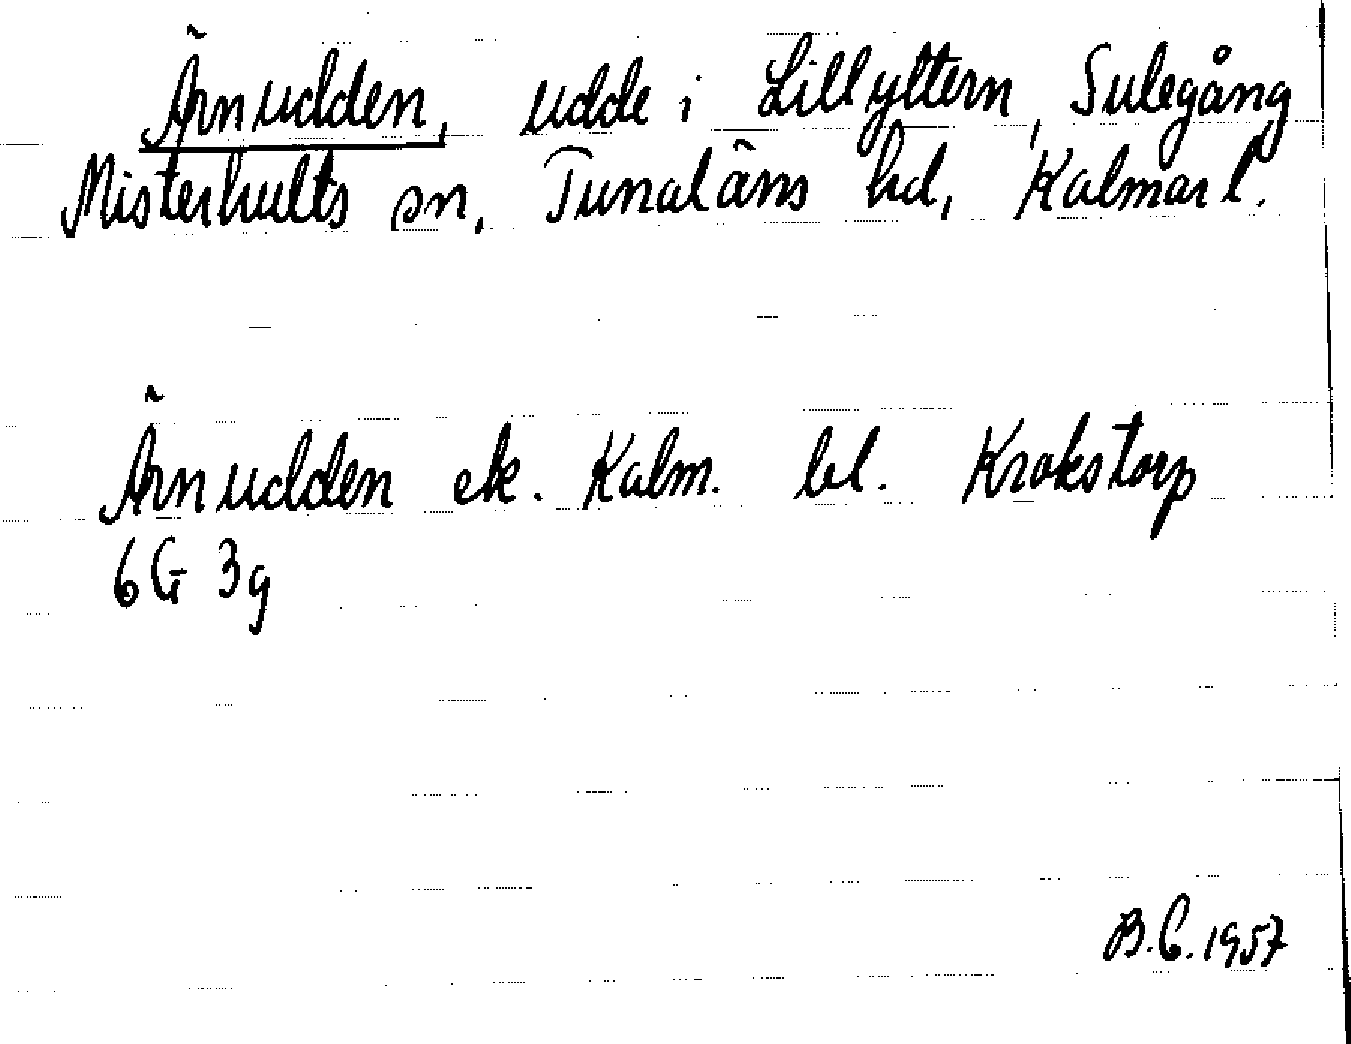 Ärnudden, udde i Lillyltern, Sulegång
Misterhults sn, Tunaläns hd, Kalmar l.
Ärnudden ek. Kalm. bl. Krokstorp
6G 3g
B.C. 1957